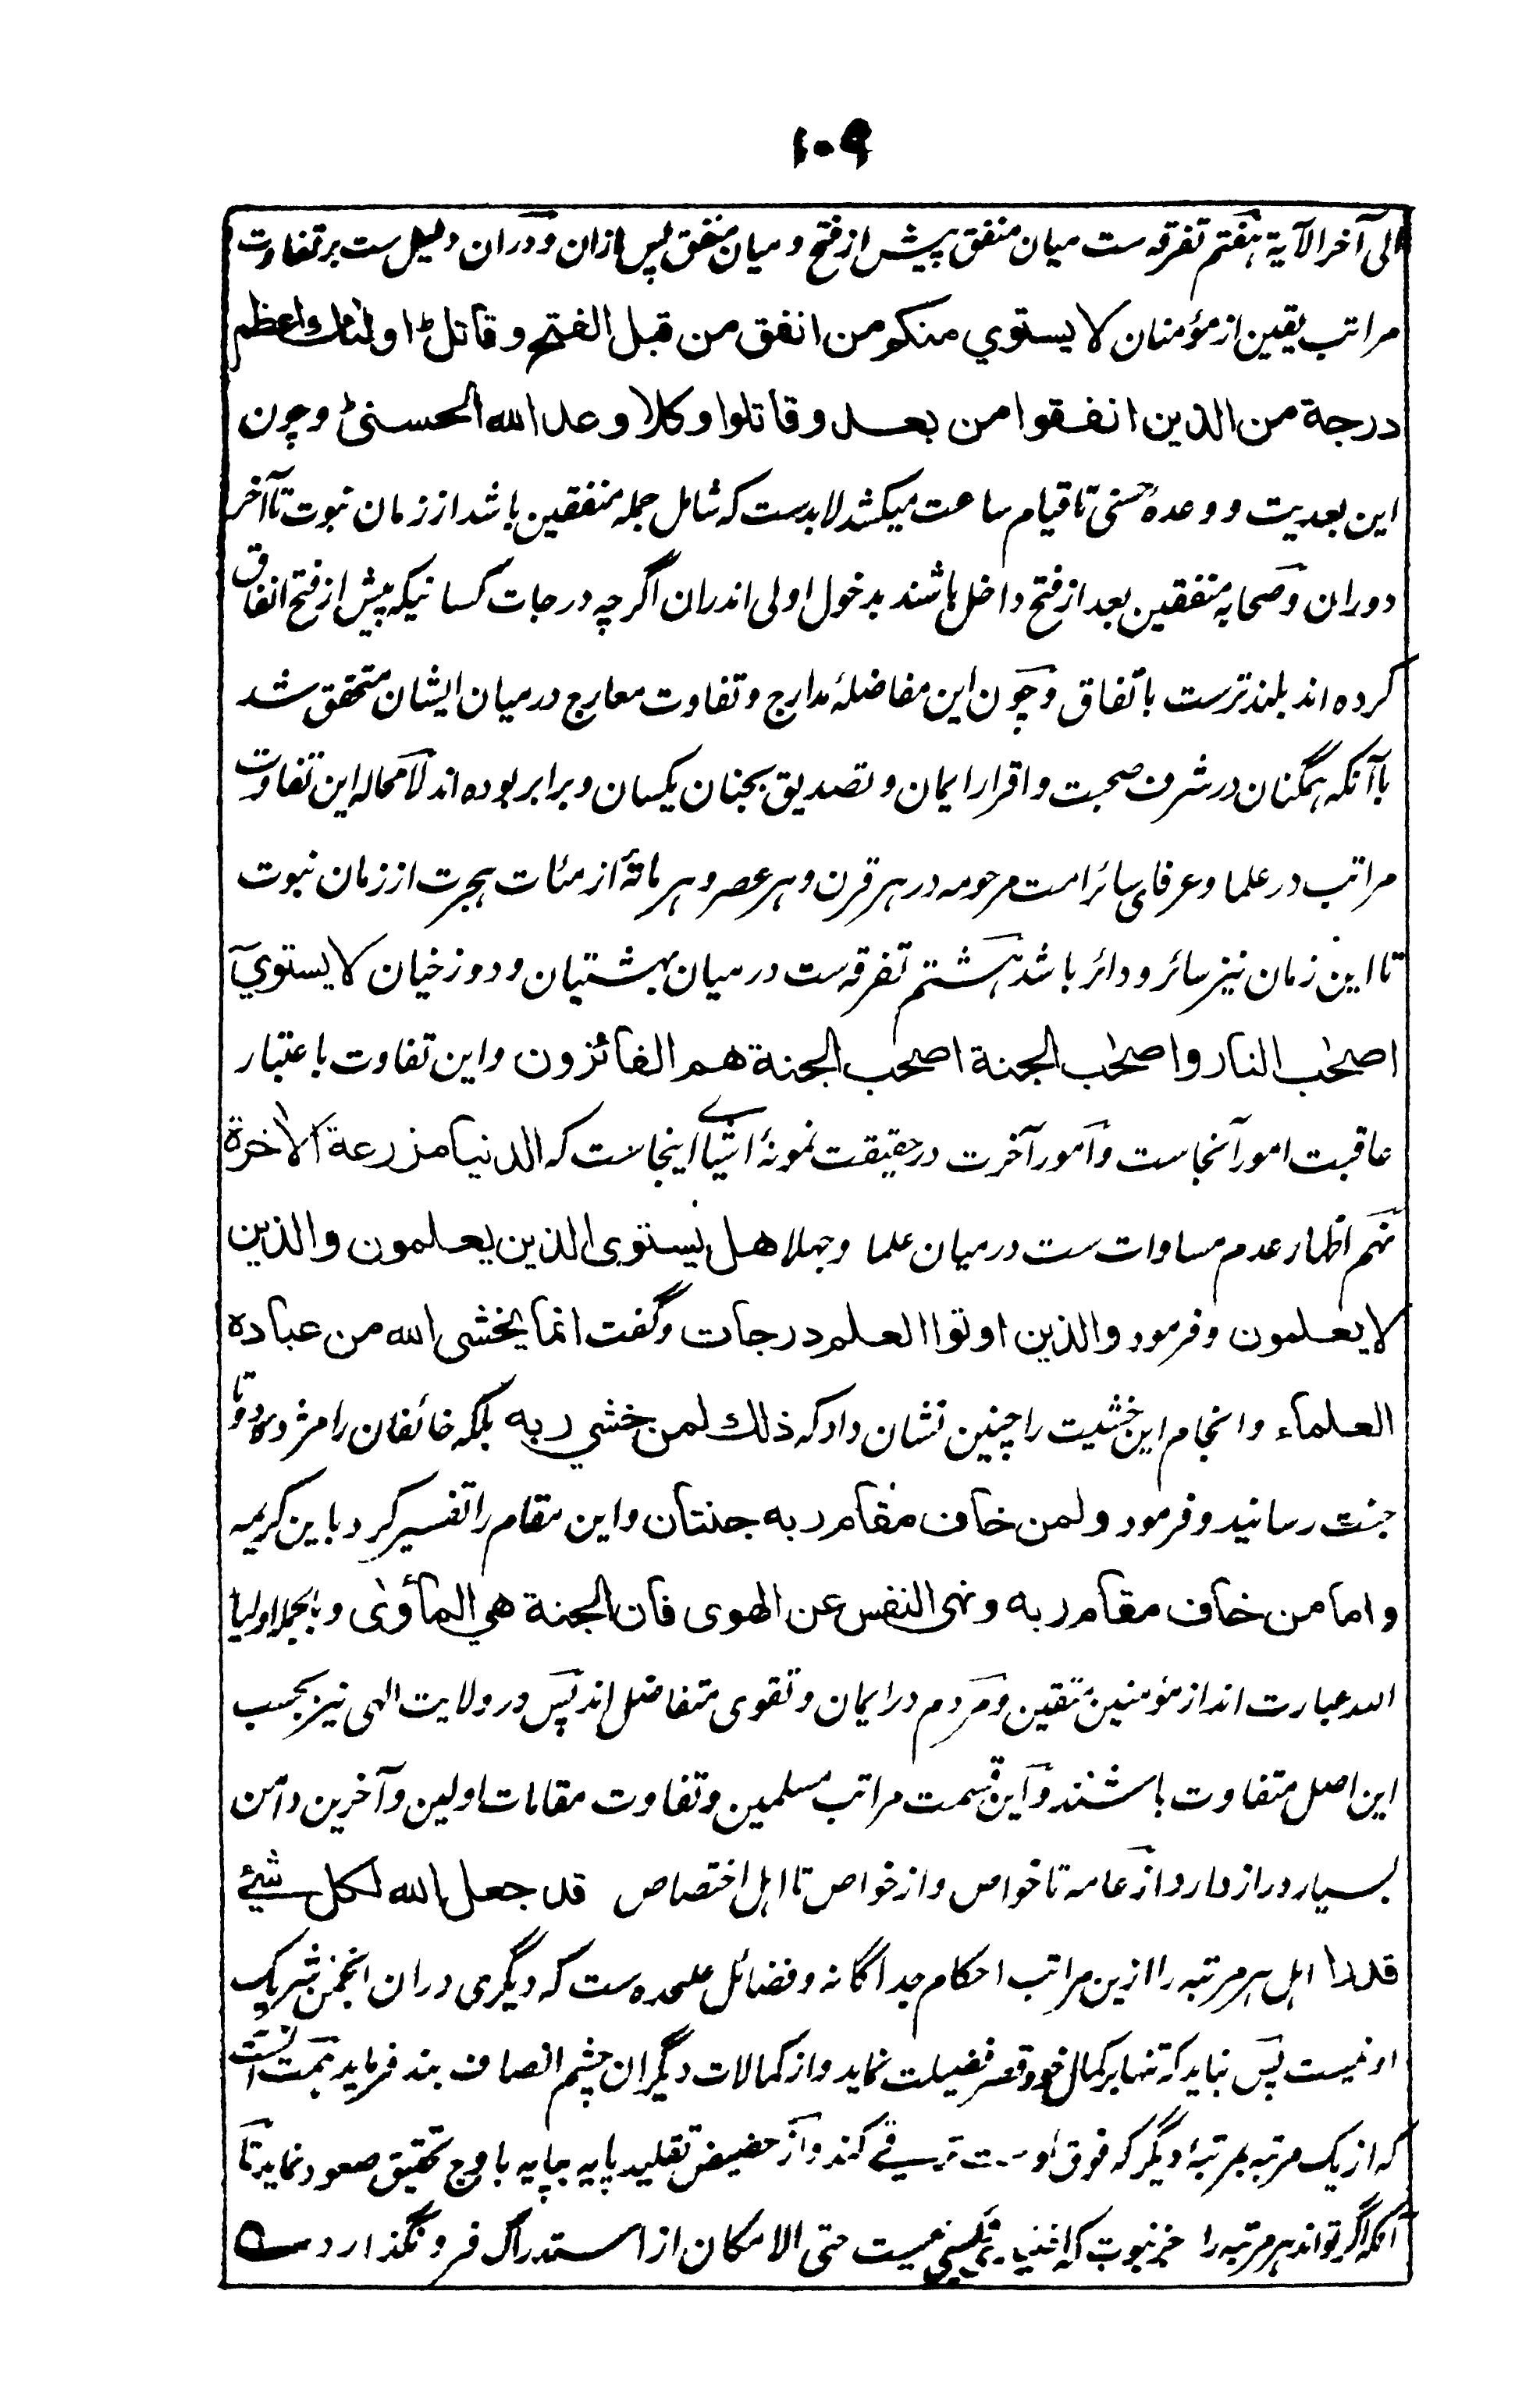 ۱۰۹
الی آخر الآیة هفتم تفرقه ست میان منفق پیش از فتح و میان منفق پس ازان و دران دلیل ست بر تفاوت
مراتب یقین از مؤمنان لا يستوي منكم من انفق من قبل الفتح وقاتل ط اولئك اعظم
درجة من الذين انفقوا من بعد وقاتلوا وكلا وعد الله الحسنى ط و چون
این بعدیت و وعدهٔ حسنی تا قیام ساعت میکشد لابدست که شامل جمله منفقین باشد از زمان نبوت تا آخر
دوران و صحابه منفقین بعد از فتح داخل باشند بدخول اولی اندران اگرچه درجات کسانیکه پیش از فتح انفاق
کرده اند بلندترست باتفاق و چون این مفاضلهٔ مدارج و تفاوت معارج درمیان ایشان متحقق شد
با آنکه همگنان در شرف صحبت و اقرار ایمان و تصدیق بجنان یکسان و برابر بوده اند لامحاله این تفاوت
مراتب در علما و عرفای سائر امت مرحومه در هر قرن و هر عصر و هر مائة از مئات هجرت از زمان نبوت
تا این زمان نیز سائر و دائر باشد هشتم تفرقه ست درمیان بهشتیان و دوزخیان لا يستوي
اصحٰب النار واصحٰب الجنة اصحٰب الجنة هم الفائزون و این تفاوت باعتبار
عاقبت امور آنجاست و امور آخرت درحقیقت نمونهٔ اشیای اینجاست که الدنيا مزرعة الاخرة
نهم اظهار عدم مساوات ست درمیان علما و جهلا هل يستوى الذين يعلمون والذين
لا يعلمون و فرمود والذين اوتوا العلم درجات و گفت انما يخشى الله من عباده
العلماء و انجام این خشیت را چنین نشان داد که ذلك لمن خشي ربه بلکه خائفان را مژده دوتا
جنت رسانید و فرمود ولمن خاف مقام ربه جنتان و این مقام را تفسیر کرد باین کریمه
واما من خاف مقام ربه ونهى النفس عن الهوى فان الجنة هي المأوٰى و بالجمله اولیا
الله عبارت اند از مؤمنین متقین و مردم در ایمان و تقوی متفاضل اند پس در ولایت الهی نیز بحسب
این اصل متفاوت باشند و این قسمت مراتب مسلمین و تفاوت مقامات اولین و آخرین دامن
بسیار دراز دارد از عامه تا خواص و از خواص تا اهل اختصاص قد جعل الله لكل شيئ
قدرا اهل هر مرتبه را ازین مراتب احکام جداگانه و فضائل علحده ست که دیگری دران انجمن شریک
او نیست پس نباید که تنها بر کمال خود قصر فضیلت نماید و از کمالات دیگران چشم انصاف بند فرماید همت آنست
که از یک مرتبه بمرتبهٔ دیگر که فوق اوست ترقی کند و از حضیض تقلید پایه بپایه باوج تحقیق صعود نماید تا
آنکه اگر تواند هر مرتبه را جز نبوت که نیست حتی الامکان از استدراک فرو نگذارد